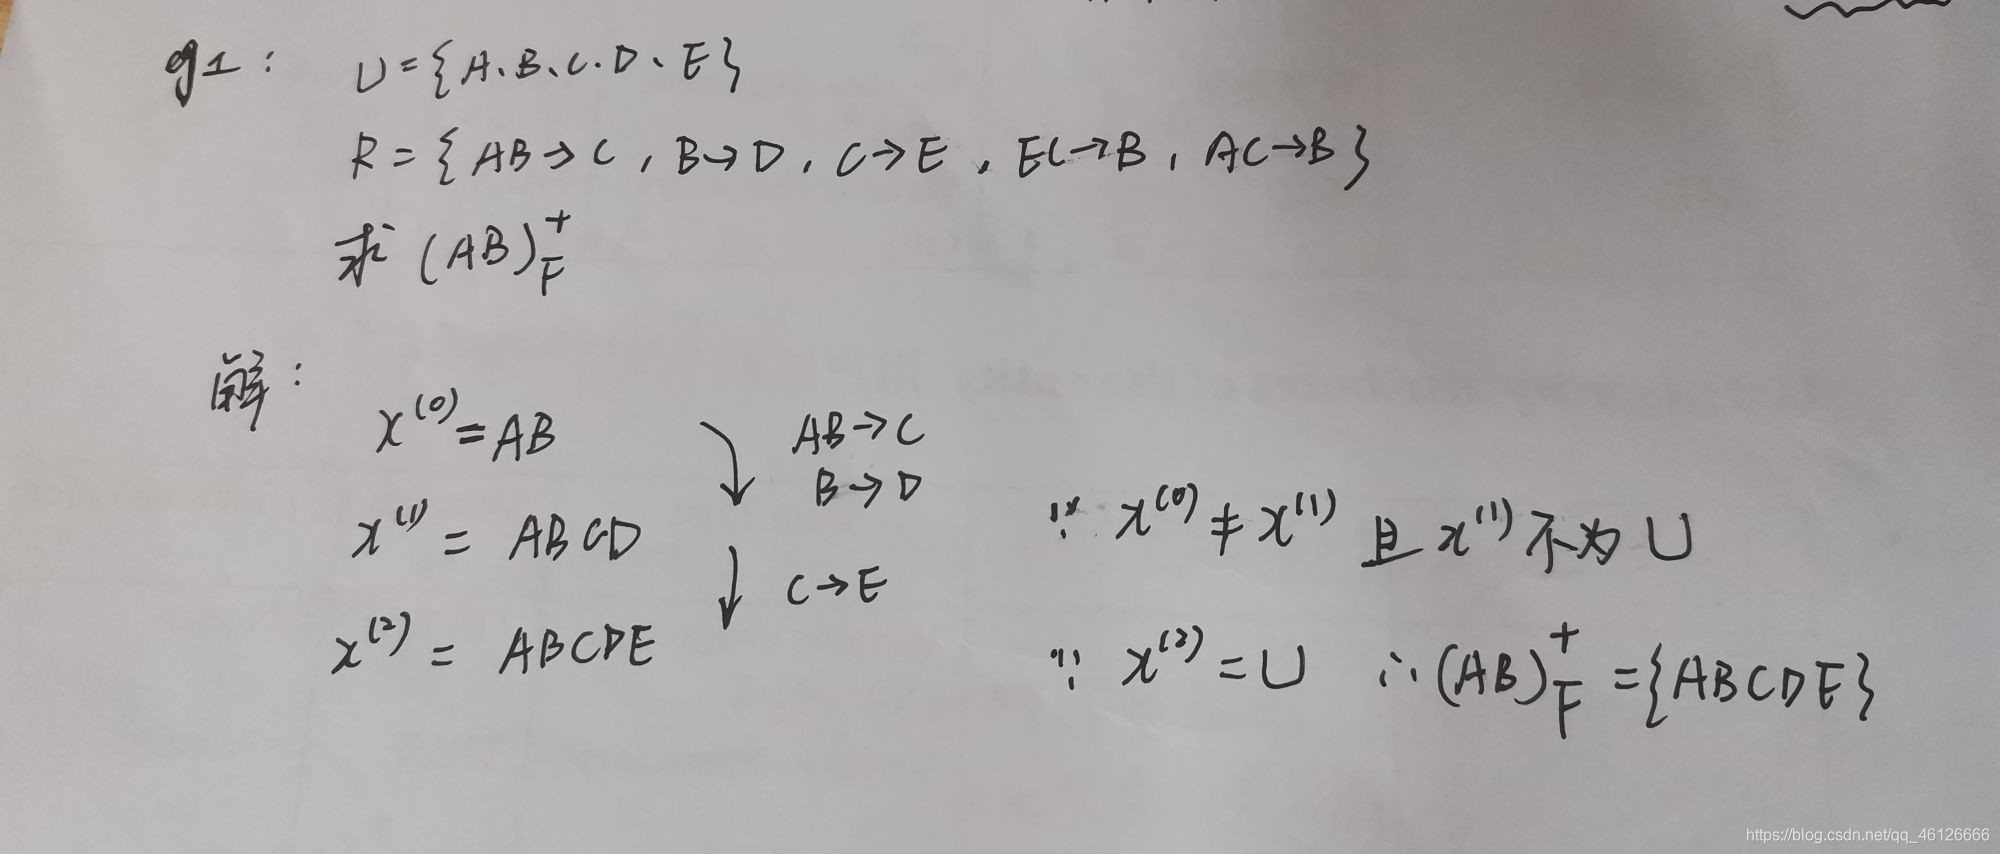 eg1: U={A、B、C.D、E}
R={AB→C, B→D, C→E, EC→B, AC→B}
求 (AB)⁺F
解:
x⁽⁰⁾=AB
AB→C
B→D
x⁽¹⁾= ABCD
∵ x⁽⁰⁾≠x⁽¹⁾ 且 x⁽¹⁾不为 U
C→E
x⁽²⁾= ABCDE
∵ x⁽²⁾=U ∴(AB)⁺F={ABCDE}
https://blog.csdn.net/qq_46126666